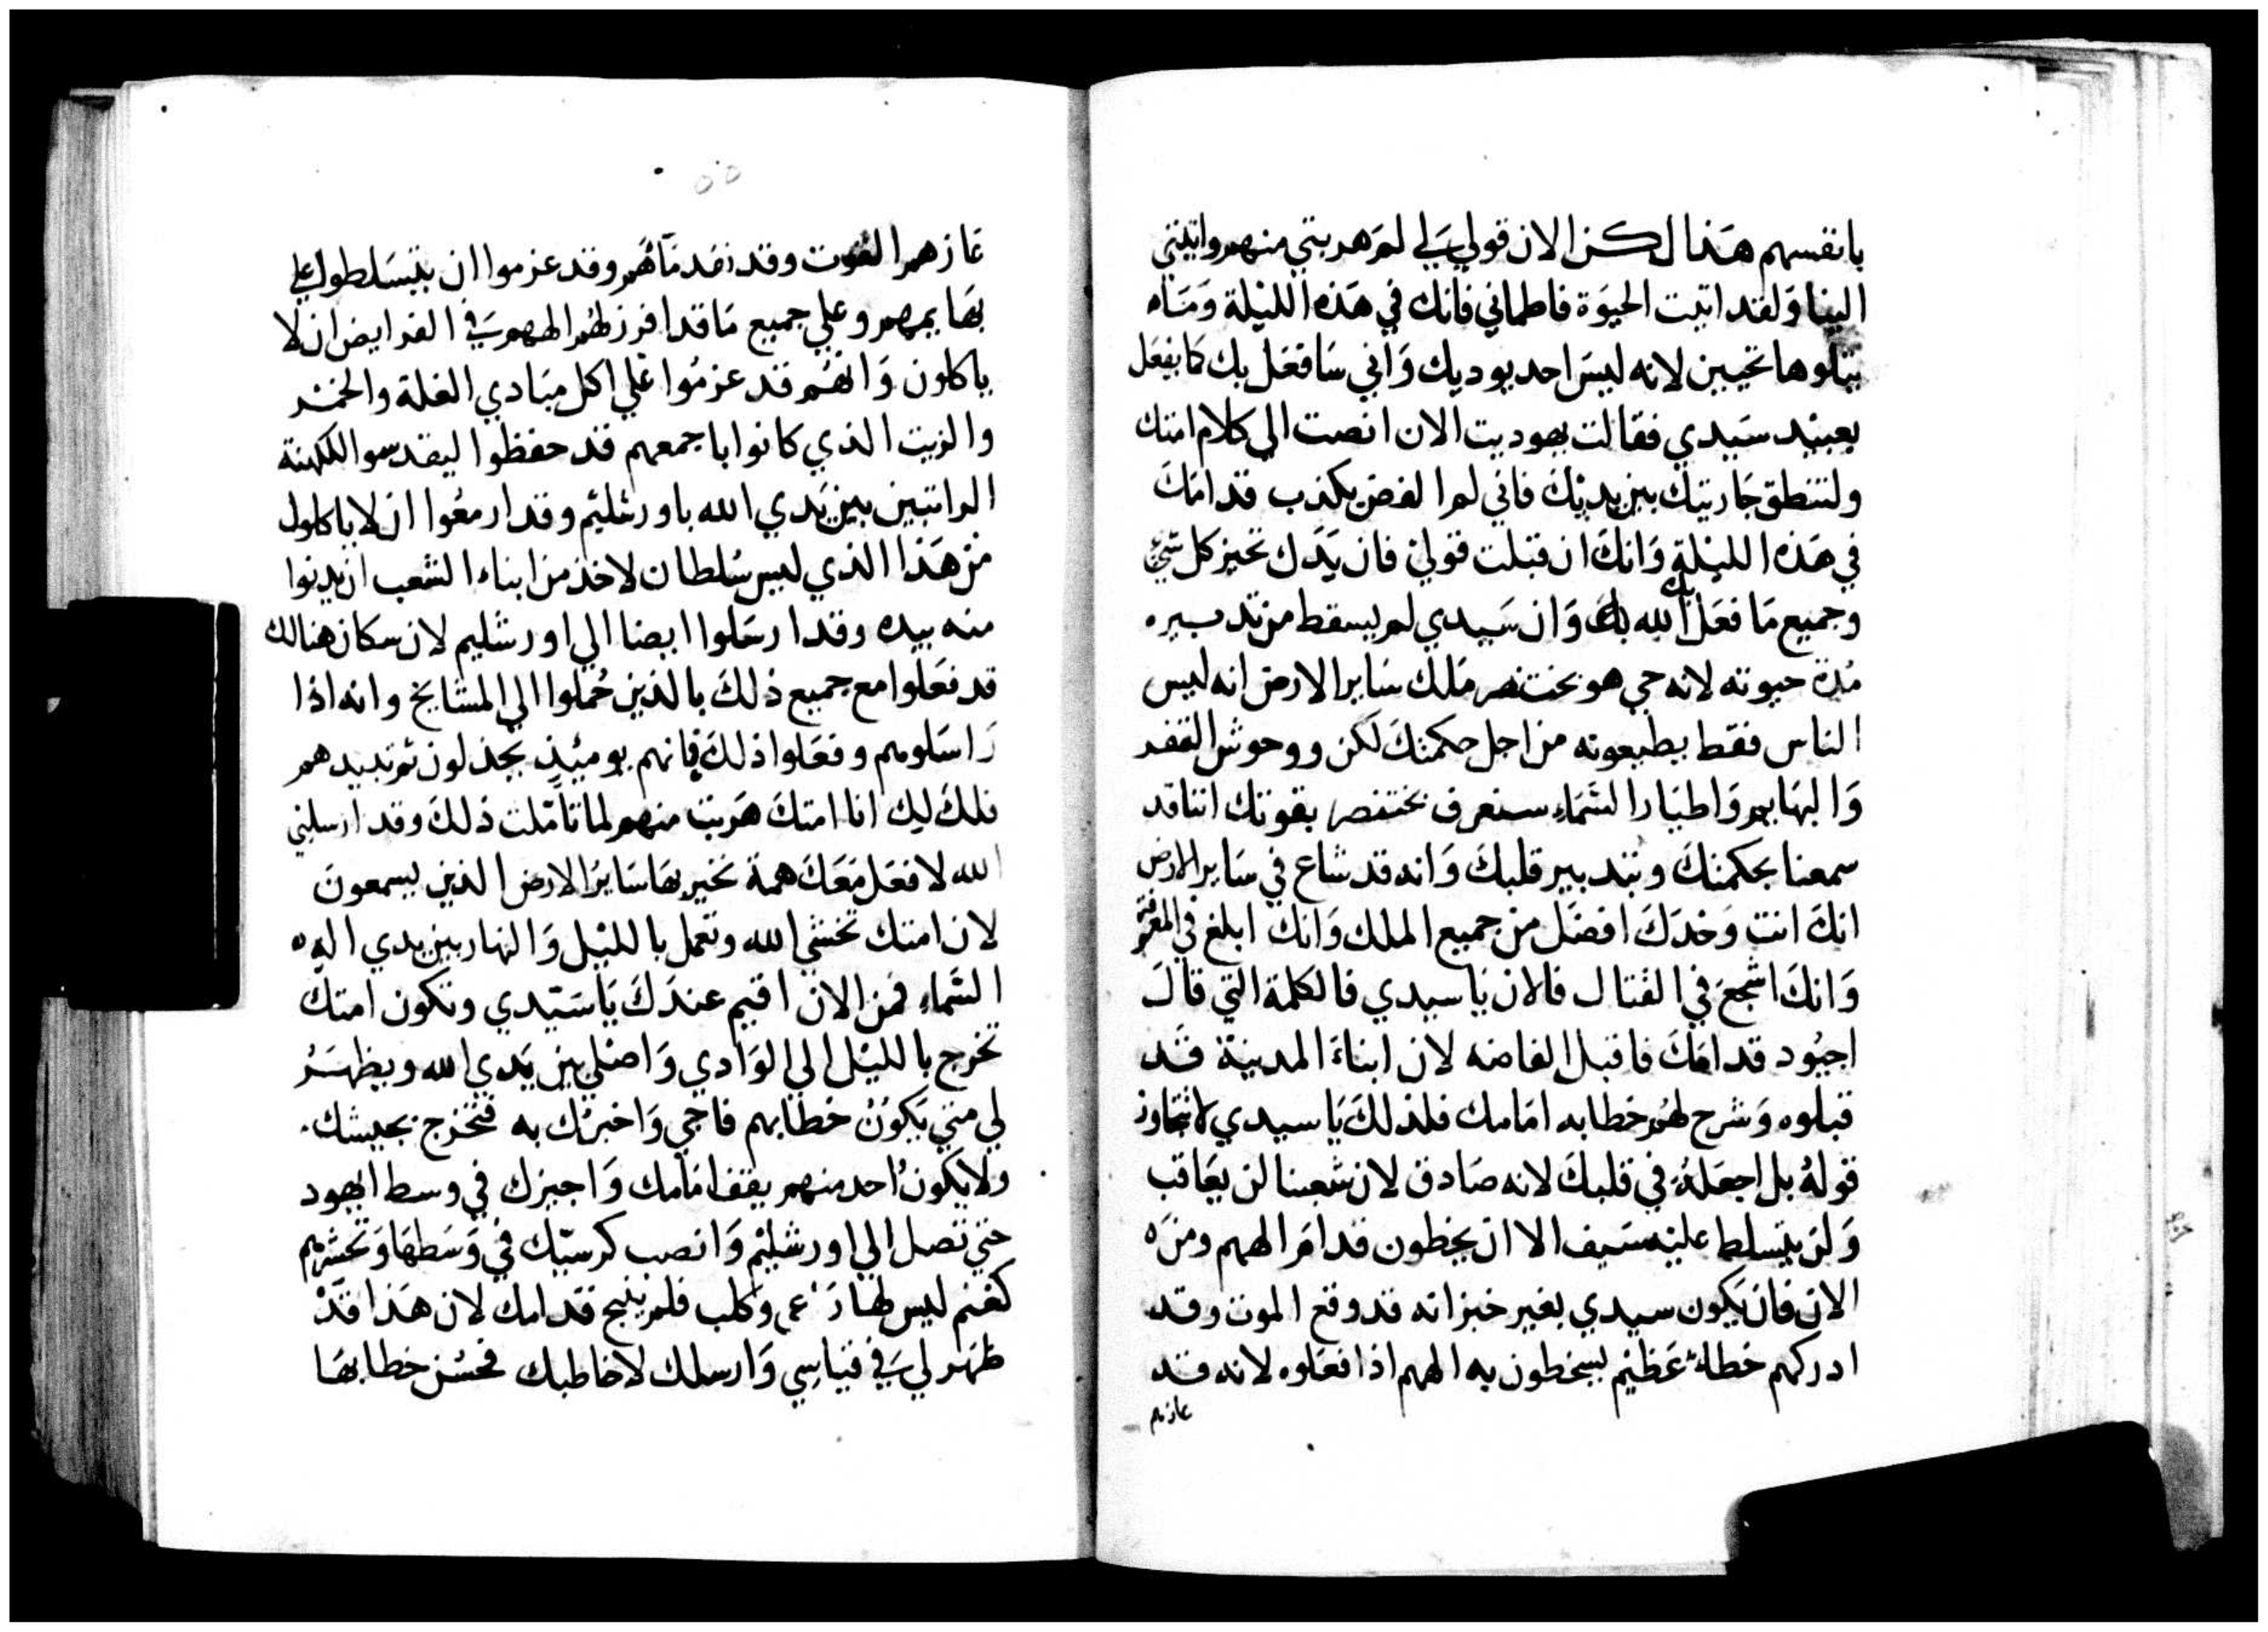 بانفسهم هذا لكن الان قولي لي لم هربتي منهم واتيتي
الينا ولقد اتيت الحيوة فاطماني فانك في هذه الليلة وما
يتلوها تحيين لانه ليس احد يوديك واني سافعل بك كما يفعل
بعبيد سيدي فقالت يهوديت الان انصت الي كلام امتك
ولتنطق جاريتك بين يديك فاني لم الفض بكذب قدامك
في هذه الليلة وانك ان قبلت قولي فان يدك تحيز كل شي
وجميع ما فعل الله بك وان سيدي لم يسقط من تدبيره
مدة حيوته لانه حي هو بختنصر ملك ساير الارض انه ليس
الناس فقط يطيعونه من اجل حكمتك لكن ووحوش القفر
والبهايم واطيار السماء ستعرف بختنصر بقوتك اننا قد
سمعنا بحكمتك وبتدبير قلبك وانه قد شاع في ساير الارض
انك انت وحدك افضل من جميع الملك وانك ابلغ في المعرفة
وانك اشجع في القتال فالان يا سيدي فالكلمة التي قال
اجيود قدامك فاقبل الفاضه لان ابناء المدينة قد
قبلوه وشرح لهم خطابه امامك فلذلك يا سيدي لا تتجاوز
قوله بل اجعله في قلبك لانه صادق لان شعبنا لن يعاقب
ولن يتسلط عليه سيف الا ان يخطون قدام الههم ومن
الان فان يكون سيدي بغير خبز انه قد وقع الموت وقد
ادركهم خطاء عظيم يسخطون به الههم اذا فعلوه لانه قد
عازهم
٥٥
عازهم القوت وقد نفد ماهم وقد عزموا ان يتسلطوا علي
بهايمهم وعلي جميع ما قد افرز لهم الههم في الفرايض ان لا
ياكلون وانهم قد عزموا علي اكل مبادي الغلة والخمر
والزيت الذي كانوا باجمعهم قد حفظوا ليقدسوا للكهنة
الراتبين بين يدي الله باورشليم وقد ارمعوا ان لا ياكلوا
من هذا الذي ليس سلطان لاخذ من ابناء الشعب ان يدنوا
منه بيده وقد ارسلوا ايضا الي اورشليم لان سكان هنالك
قد فعلوا مع جميع ذلك بالذين حملوا الي المشايخ وانه اذا
راسلوهم وفعلوا ذلك فانهم يوميذ يخذلون ثم تبيدهم
فلك ليك انا امتك هربت منهم لما تاملت ذلك وقد ارسلني
الله لافعل معك همة تخبر بها ساير الارض الذين يسمعون
لان امتك تخشي الله وتعمل بالليل والنهار بين يدي اله
السماء فمن الان اقيم عندك يا سيدي وتكون امتك
تخرج بالليل الي الوادي واصلي بين يدي الله ويظهر
لي متي يكون خطابهم فاجي واخبرك به فتخرج بجيشك
ولا يكون احد منهم يقف امامك واجيزك في وسط اليهود
حتي تصل الي اورشليم وانصب كرسيك في وسطها وتحشرهم
كغنم ليس لها راعي وكلب فلم ينبح قدامك لان هذا قد
ظهر لي في قياسي وارسلك لاخاطبك فحسن خطابها